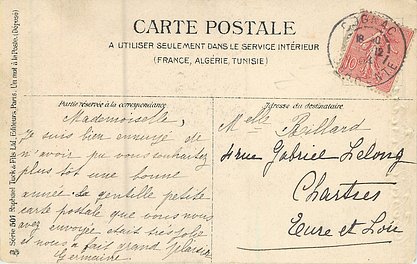 CARTE POSTALE
A UTILISER SEULEMENT DANS LE SERVICE INTÉRIEUR
(FRANCE, ALGÉRIE, TUNISIE)
COGNAC
Série 501 Raphael Tuck & Fils Ltd. Editeurs, Paris. Un mot à la Poste. (Déposé)
Partie réservée à la correspondance
Mademoiselle,
Je suis bien ennuyé de
n'avoir pu vous souhaitez
plus tôt une bonne
année. La gentille petite
carte postale que vous nous
avez envoyée était très jolie
et nous a fait grand plaisir
Germaine
Adresse du destinataire
Melle Billard
4 rue Gabriel Lelong
Chartres
Eure et Loir